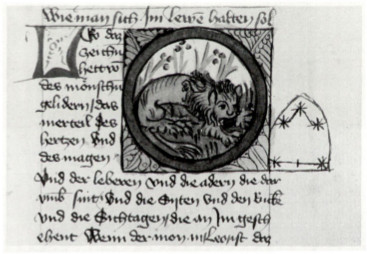 Wie man sich Im lewen halten sol
So daz
zeichn
hett
des mönschn
gelidern das
merteil des
hertzen Vnd
des magen
Vnd der leberen vnd die adern die dar
vmb sint Vnd die Siten vnd den
Vnd die Sichtagen die an Im gesch
ehent Wenn der mon im ist daz